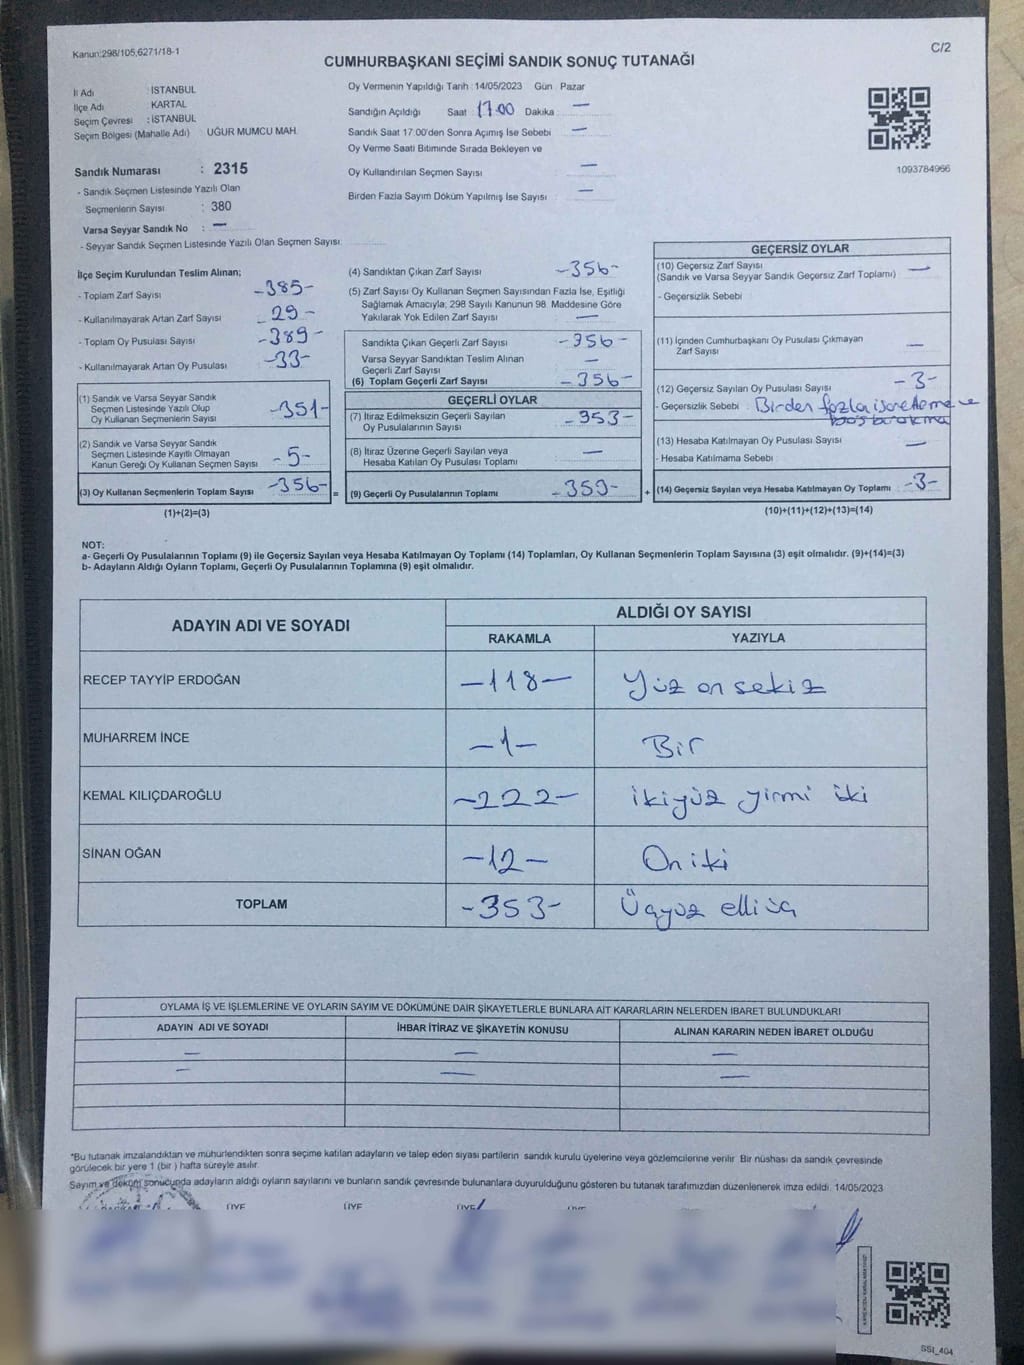 Kanun:298/105,6271/18-1
C/2
CUMHURBAŞKANI SEÇİMİ SANDIK SONUÇ TUTANAĞI
İl Adı : İSTANBUL
İlçe Adı KARTAL
Seçim Çevresi : İSTANBUL
Seçim Bölgesi (Mahalle Adı) UĞUR MUMCU MAH.
Sandık Numarası : 2315
- Sandık Seçmen Listesinde Yazılı Olan
Seçmenlerin Sayısı : 380
Varsa Seyyar Sandık No : —
- Seyyar Sandık Seçmen Listesinde Yazılı Olan Seçmen Sayısı:
Oy Vermenin Yapıldığı Tarih : 14/05/2023 Gün : Pazar
Sandığın Açıldığı Saat : 17.00 Dakika —
Sandık Saat 17:00'den Sonra Açımış İse Sebebi —
Oy Verme Saati Bitiminde Sırada Bekleyen ve
Oy Kullandırılan Seçmen Sayısı —
Birden Fazla Sayım Döküm Yapılmış İse Sayısı —
1093784966
İlçe Seçim Kurulundan Teslim Alınan;
- Toplam Zarf Sayısı -385-
- Kullanılmayarak Artan Zarf Sayısı 29-
- Toplam Oy Pusulası Sayısı -389-
- Kullanılmayarak Artan Oy Pusulası -33-
(1) Sandık ve Varsa Seyyar Sandık
Seçmen Listesinde Yazılı Olup
Oy Kullanan Seçmenlerin Sayısı -351-
(2) Sandık ve Varsa Seyyar Sandık
Seçmen Listesinde Kayıtlı Olmayan
Kanun Gereği Oy Kullanan Seçmen Sayısı -5-
(3) Oy Kullanan Seçmenlerin Toplam Sayısı -356- =
(1)+(2)=(3)
(4) Sandıktan Çıkan Zarf Sayısı -356-
(5) Zarf Sayısı Oy Kullanan Seçmen Sayısından Fazla İse, Eşitliği
Sağlamak Amacıyla; 298 Sayılı Kanunun 98. Maddesine Göre
Yakılarak Yok Edilen Zarf Sayısı —
Sandıkta Çıkan Geçerli Zarf Sayısı -356-
Varsa Seyyar Sandıktan Teslim Alınan
Geçerli Zarf Sayısı —
(6) Toplam Geçerli Zarf Sayısı -356-
GEÇERLİ OYLAR
(7) İtiraz Edilmeksizin Geçerli Sayılan
Oy Pusulalarının Sayısı -353-
(8) İtiraz Üzerine Geçerli Sayılan veya
Hesaba Katılan Oy Pusulası Toplamı —
(9) Geçerli Oy Pusulalarının Toplamı -353- +
GEÇERSİZ OYLAR
(10) Geçersiz Zarf Sayısı
(Sandık ve Varsa Seyyar Sandık Geçersiz Zarf Toplamı) —
- Geçersizlik Sebebi :
(11) İçinden Cumhurbaşkanı Oy Pusulası Çıkmayan
Zarf Sayısı —
(12) Geçersiz Sayılan Oy Pusulası Sayısı -3-
- Geçersizlik Sebebi : Birden fazla işaretleme ve
boş bırakma
(13) Hesaba Katılmayan Oy Pusulası Sayısı —
- Hesaba Katılmama Sebebi :
(14) Geçersiz Sayılan veya Hesaba Katılmayan Oy Toplamı -3-
(10)+(11)+(12)+(13)=(14)
NOT:
a- Geçerli Oy Pusulalarının Toplamı (9) ile Geçersiz Sayılan veya Hesaba Katılmayan Oy Toplamı (14) Toplamları, Oy Kullanan Seçmenlerin Toplam Sayısına (3) eşit olmalıdır. (9)+(14)=(3)
b- Adayların Aldığı Oyların Toplamı, Geçerli Oy Pusulalarının Toplamına (9) eşit olmalıdır.
ADAYIN ADI VE SOYADI ALDIĞI OY SAYISI
RAKAMLA YAZIYLA
RECEP TAYYİP ERDOĞAN -118- Yüz on sekiz
MUHARREM İNCE -1- Bir
KEMAL KILIÇDAROĞLU -222- ikiyüz yirmi iki
SİNAN OĞAN -12- On iki
TOPLAM -353- Üçyüz elli üç
OYLAMA İŞ VE İŞLEMLERİNE VE OYLARIN SAYIM VE DÖKÜMÜNE DAİR ŞİKAYETLERLE BUNLARA AİT KARARLARIN NELERDEN İBARET BULUNDUKLARI
ADAYIN ADI VE SOYADI İHBAR İTİRAZ VE ŞİKAYETİN KONUSU ALINAN KARARIN NEDEN İBARET OLDUĞU
— — —
— — —
*Bu tutanak imzalandıktan ve mühürlendikten sonra seçime katılan adayların ve talep eden siyasi partilerin sandık kurulu üyelerine veya gözlemcilerine verilir. Bir nüshası da sandık çevresinde
görülecek bir yere 1 (bir ) hafta süreyle asılır.
Sayım ve döküm sonucunda adayların aldığı oyların sayılarını ve bunların sandık çevresinde bulunanlara duyurulduğunu gösteren bu tutanak tarafımızdan düzenlenerek imza edildi. 14/05/2023
ÜYE ÜYE ÜYE
SSI_404